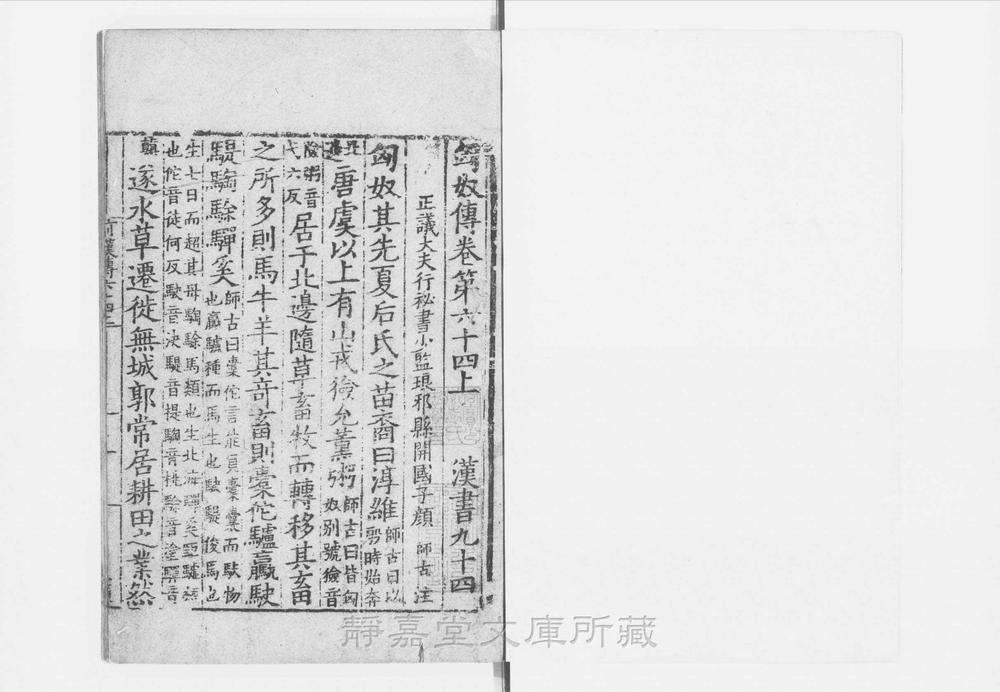 匈奴傳卷第六十四上 漢書九十四
正議大夫行祕書少監琅邪縣開國子顔 師古 注
匈奴其先夏后氏之苗裔曰淳維師古曰以殷時始奔
北邊唐虞以上有山戎獫允薰粥師古曰皆匈奴別號獫音
險粥音弋六反居于北邊隨草畜牧而轉移其畜
之所多則馬牛羊其奇畜則橐佗驢驘駃
騠騊駼驒奚師古曰橐佗言能負橐囊而馱物也驘驢種而馬生也駃騠俊馬也
生七日而超其母騊駼馬類也生北海驒奚駏驢類也佗音徒何反駃音決騠音提騊音桃駼音塗驒音
顛遂水草遷徙無城郭常居耕田之業然
前漢傳六十四上
靜嘉堂文庫所藏